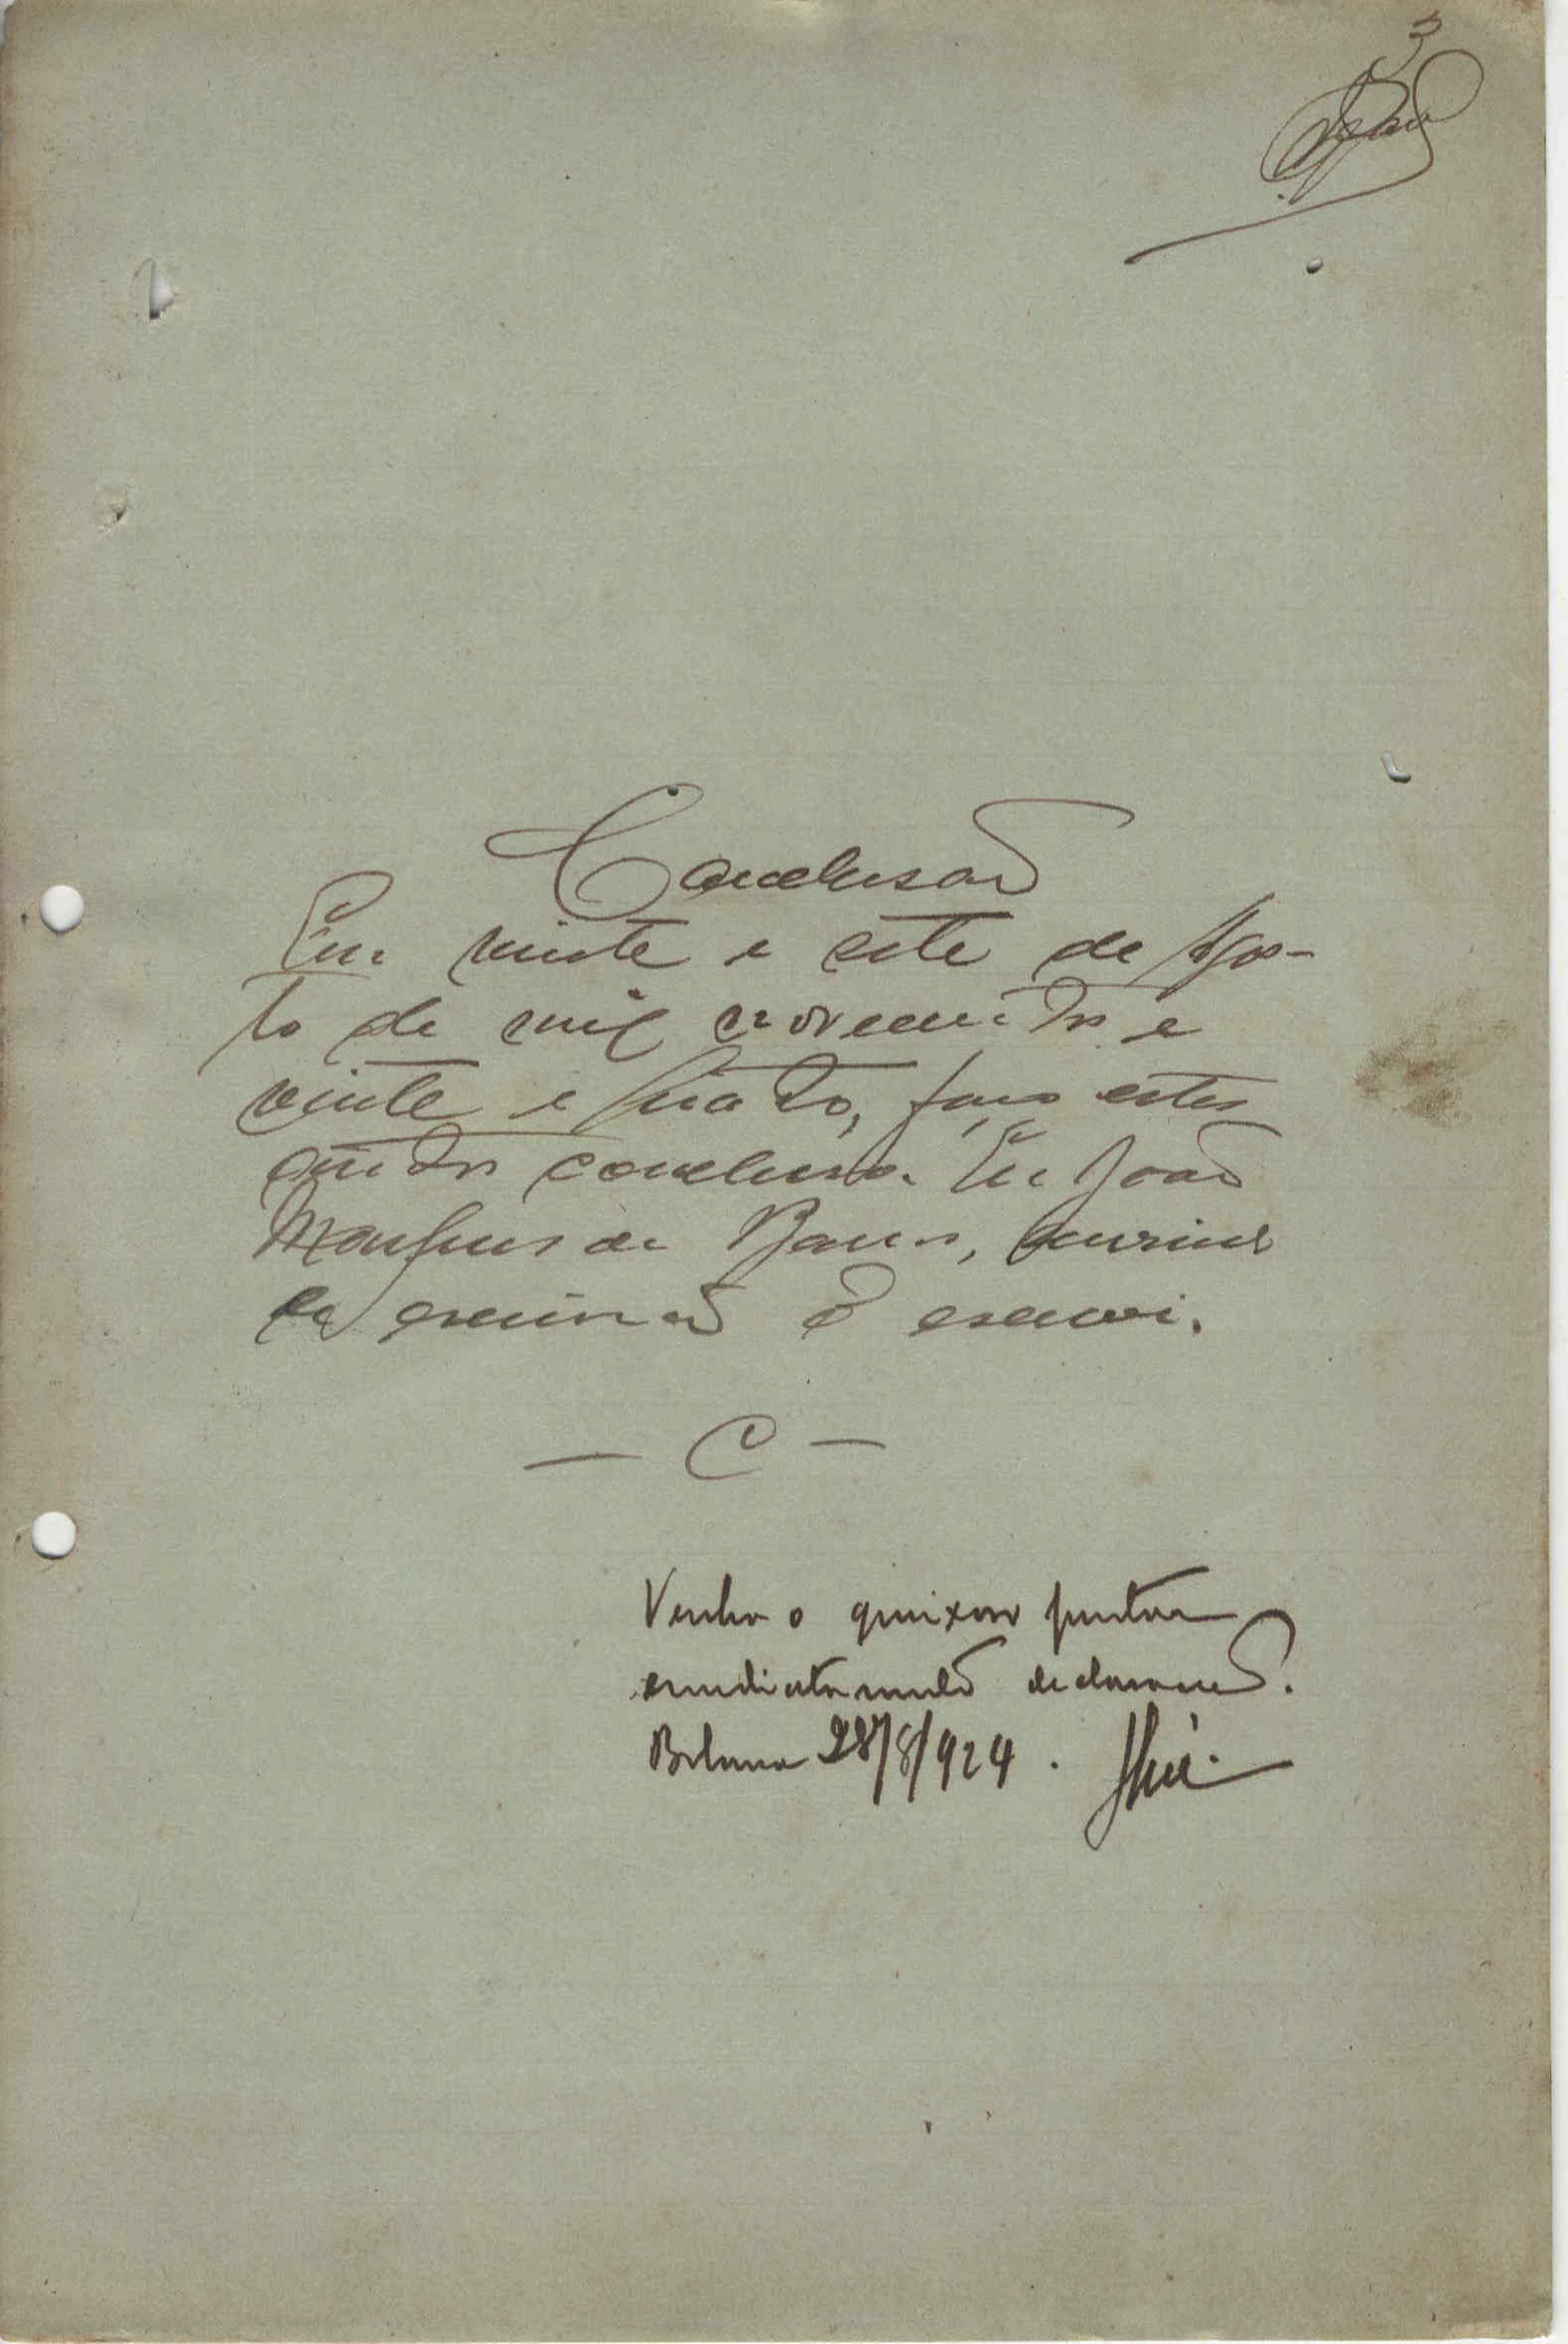 3
Conclusão
Em vinte e sete de Agos-
to de mil novecentos e
vinte e quatro, faço estes
autos conclusos. Eu João
Marques de Barros, servindo
de escrivão o escrevi.
— C —
Venha o queixoso juntar
immediatamente declarações.
28/8/924.